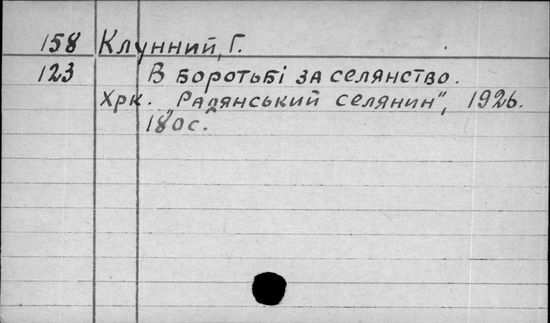 158 Клунний, Г.
123 В боротьбі за селянство.
Хрк. „Радянський селянин", 1926.
180с.